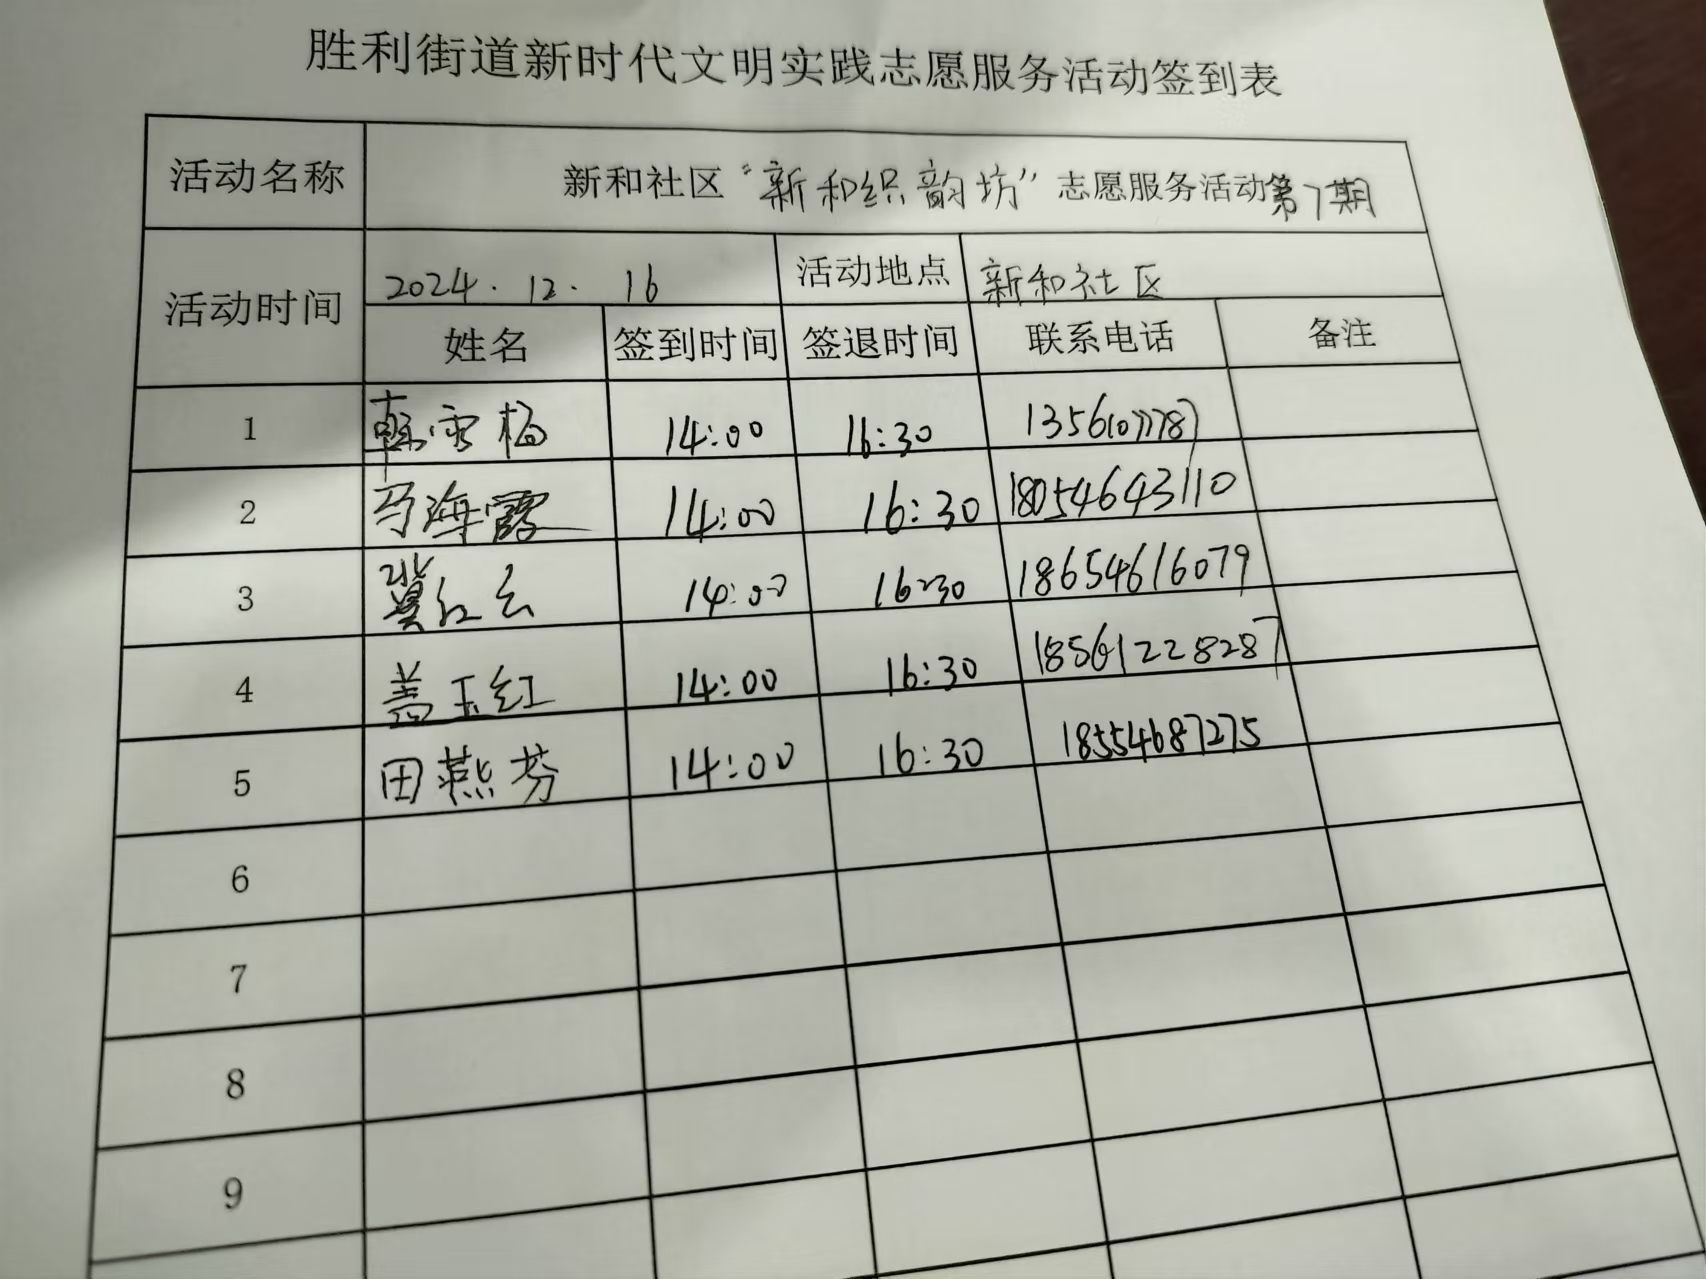 胜利街道新时代文明实践志愿服务活动签到表
活动名称 新和社区“新和织韵坊”志愿服务活动第7期
活动时间 2024.12.16 活动地点 新和社区
姓名 签到时间 签退时间 联系电话 备注
1 韩雪梅 14:00 16:30
2 马海霞 14:00 16:30 18054643110
3 冀红云 14:00 16:30 18654616079
4 盖玉红 14:00 16:30 18561228287
5 田燕芬 14:00 16:30 18554687275
6
7
8
9